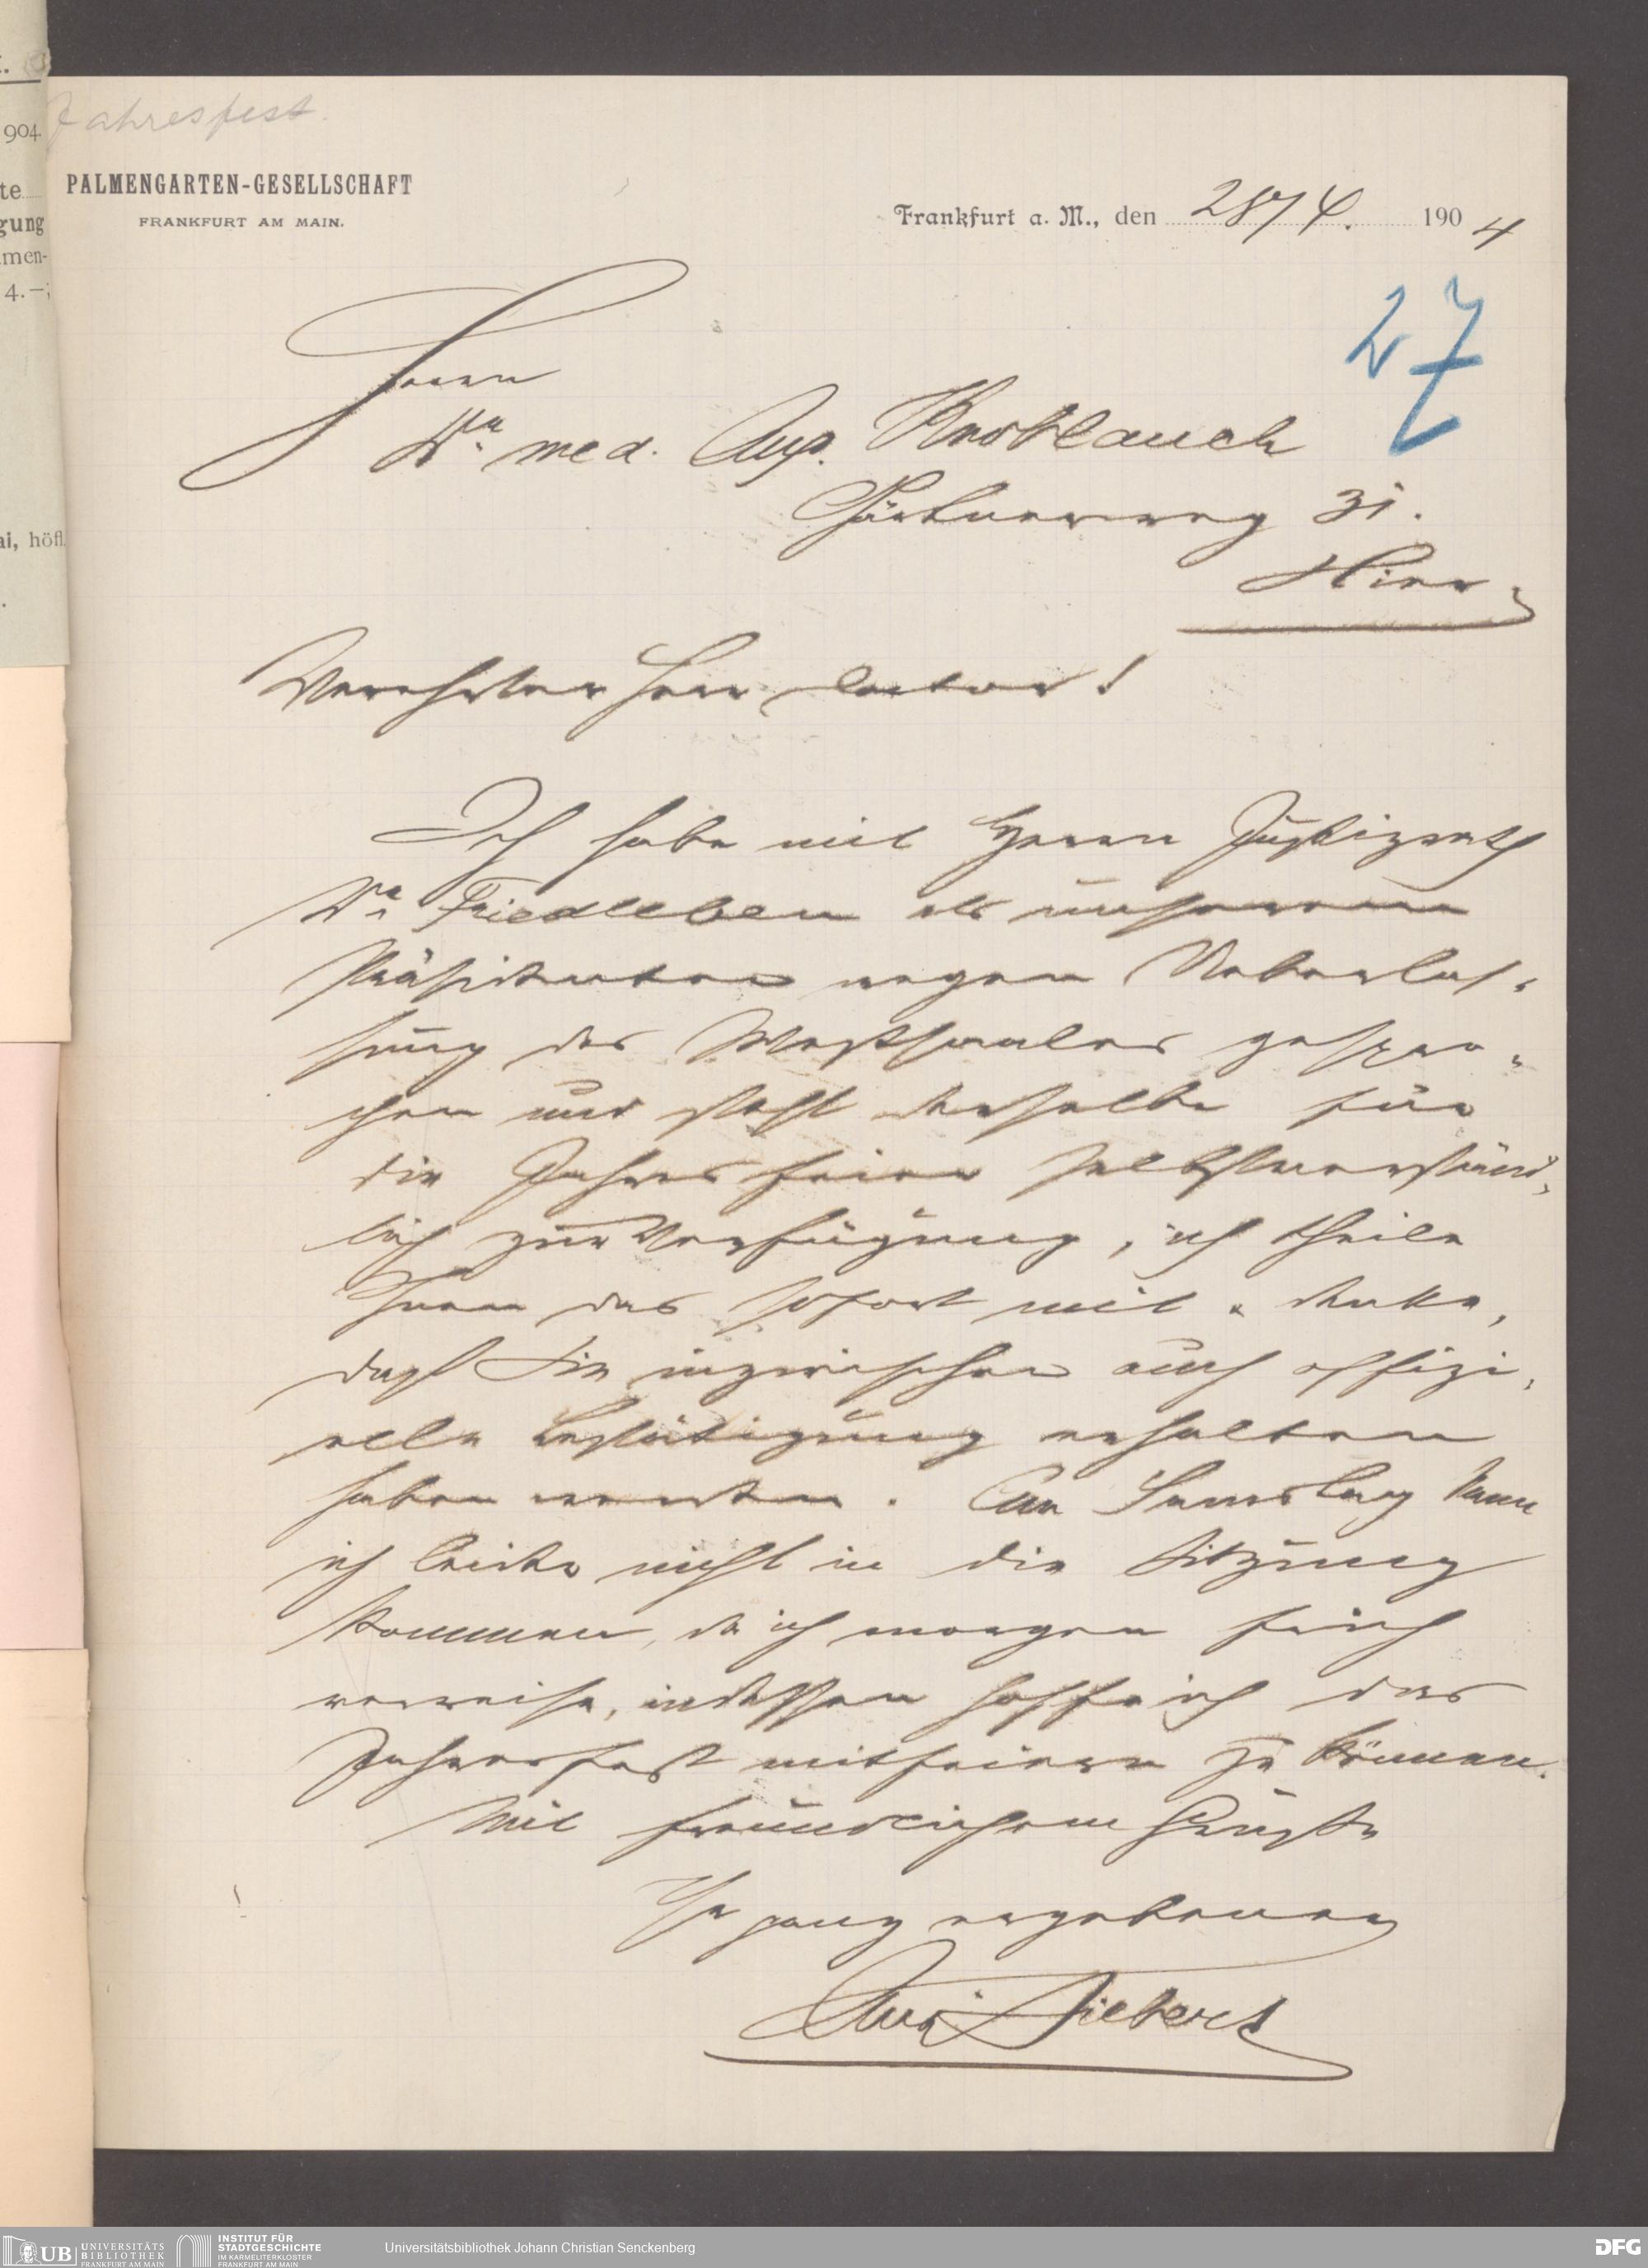 Jahresfest.
PALMENGARTEN-GESELLSCHAFT
FRANKFURT AM MAIN.
Frankfurt a. M., den 28/4. 1904
27
Herrn
Dr. med. Aug. Knoblauch
Gärtnerweg 31.
Hier
Verehrter Herr Doctor!
Ich habe mit Herrn Justizrath
Dr. Friedleben als unserem
Präsidenten wegen Ueberlas-
sung des Westsaales gespro-
chen und steht derselbe für
die Jahresfeier selbstverständ-
lich zur Verfügung, ich theile
Ihnen das sofort mit u. denke,
daß Sie inzwischen auch offizi-
elle Bestätigung erhalten
haben werden. Am Samstag kann
ich leider nicht in die Sitzung
kommen, da ich morgen früh
verreise, indessen hoffe ich das
Jahresfest mitfeiern zu können.
Mit freundlichem Gruße
Ihr ganz ergebener
Aug. Siebert
904.
te
gung
men-
4.—;
ai, höfl.
UB UNIVERSITÄTS
BIBLIOTHEK
FRANKFURT AM MAIN
INSTITUT FÜR
STADTGESCHICHTE
IM KARMELITERKLOSTER
FRANKFURT AM MAIN
Universitätsbibliothek Johann Christian Senckenberg
DFG